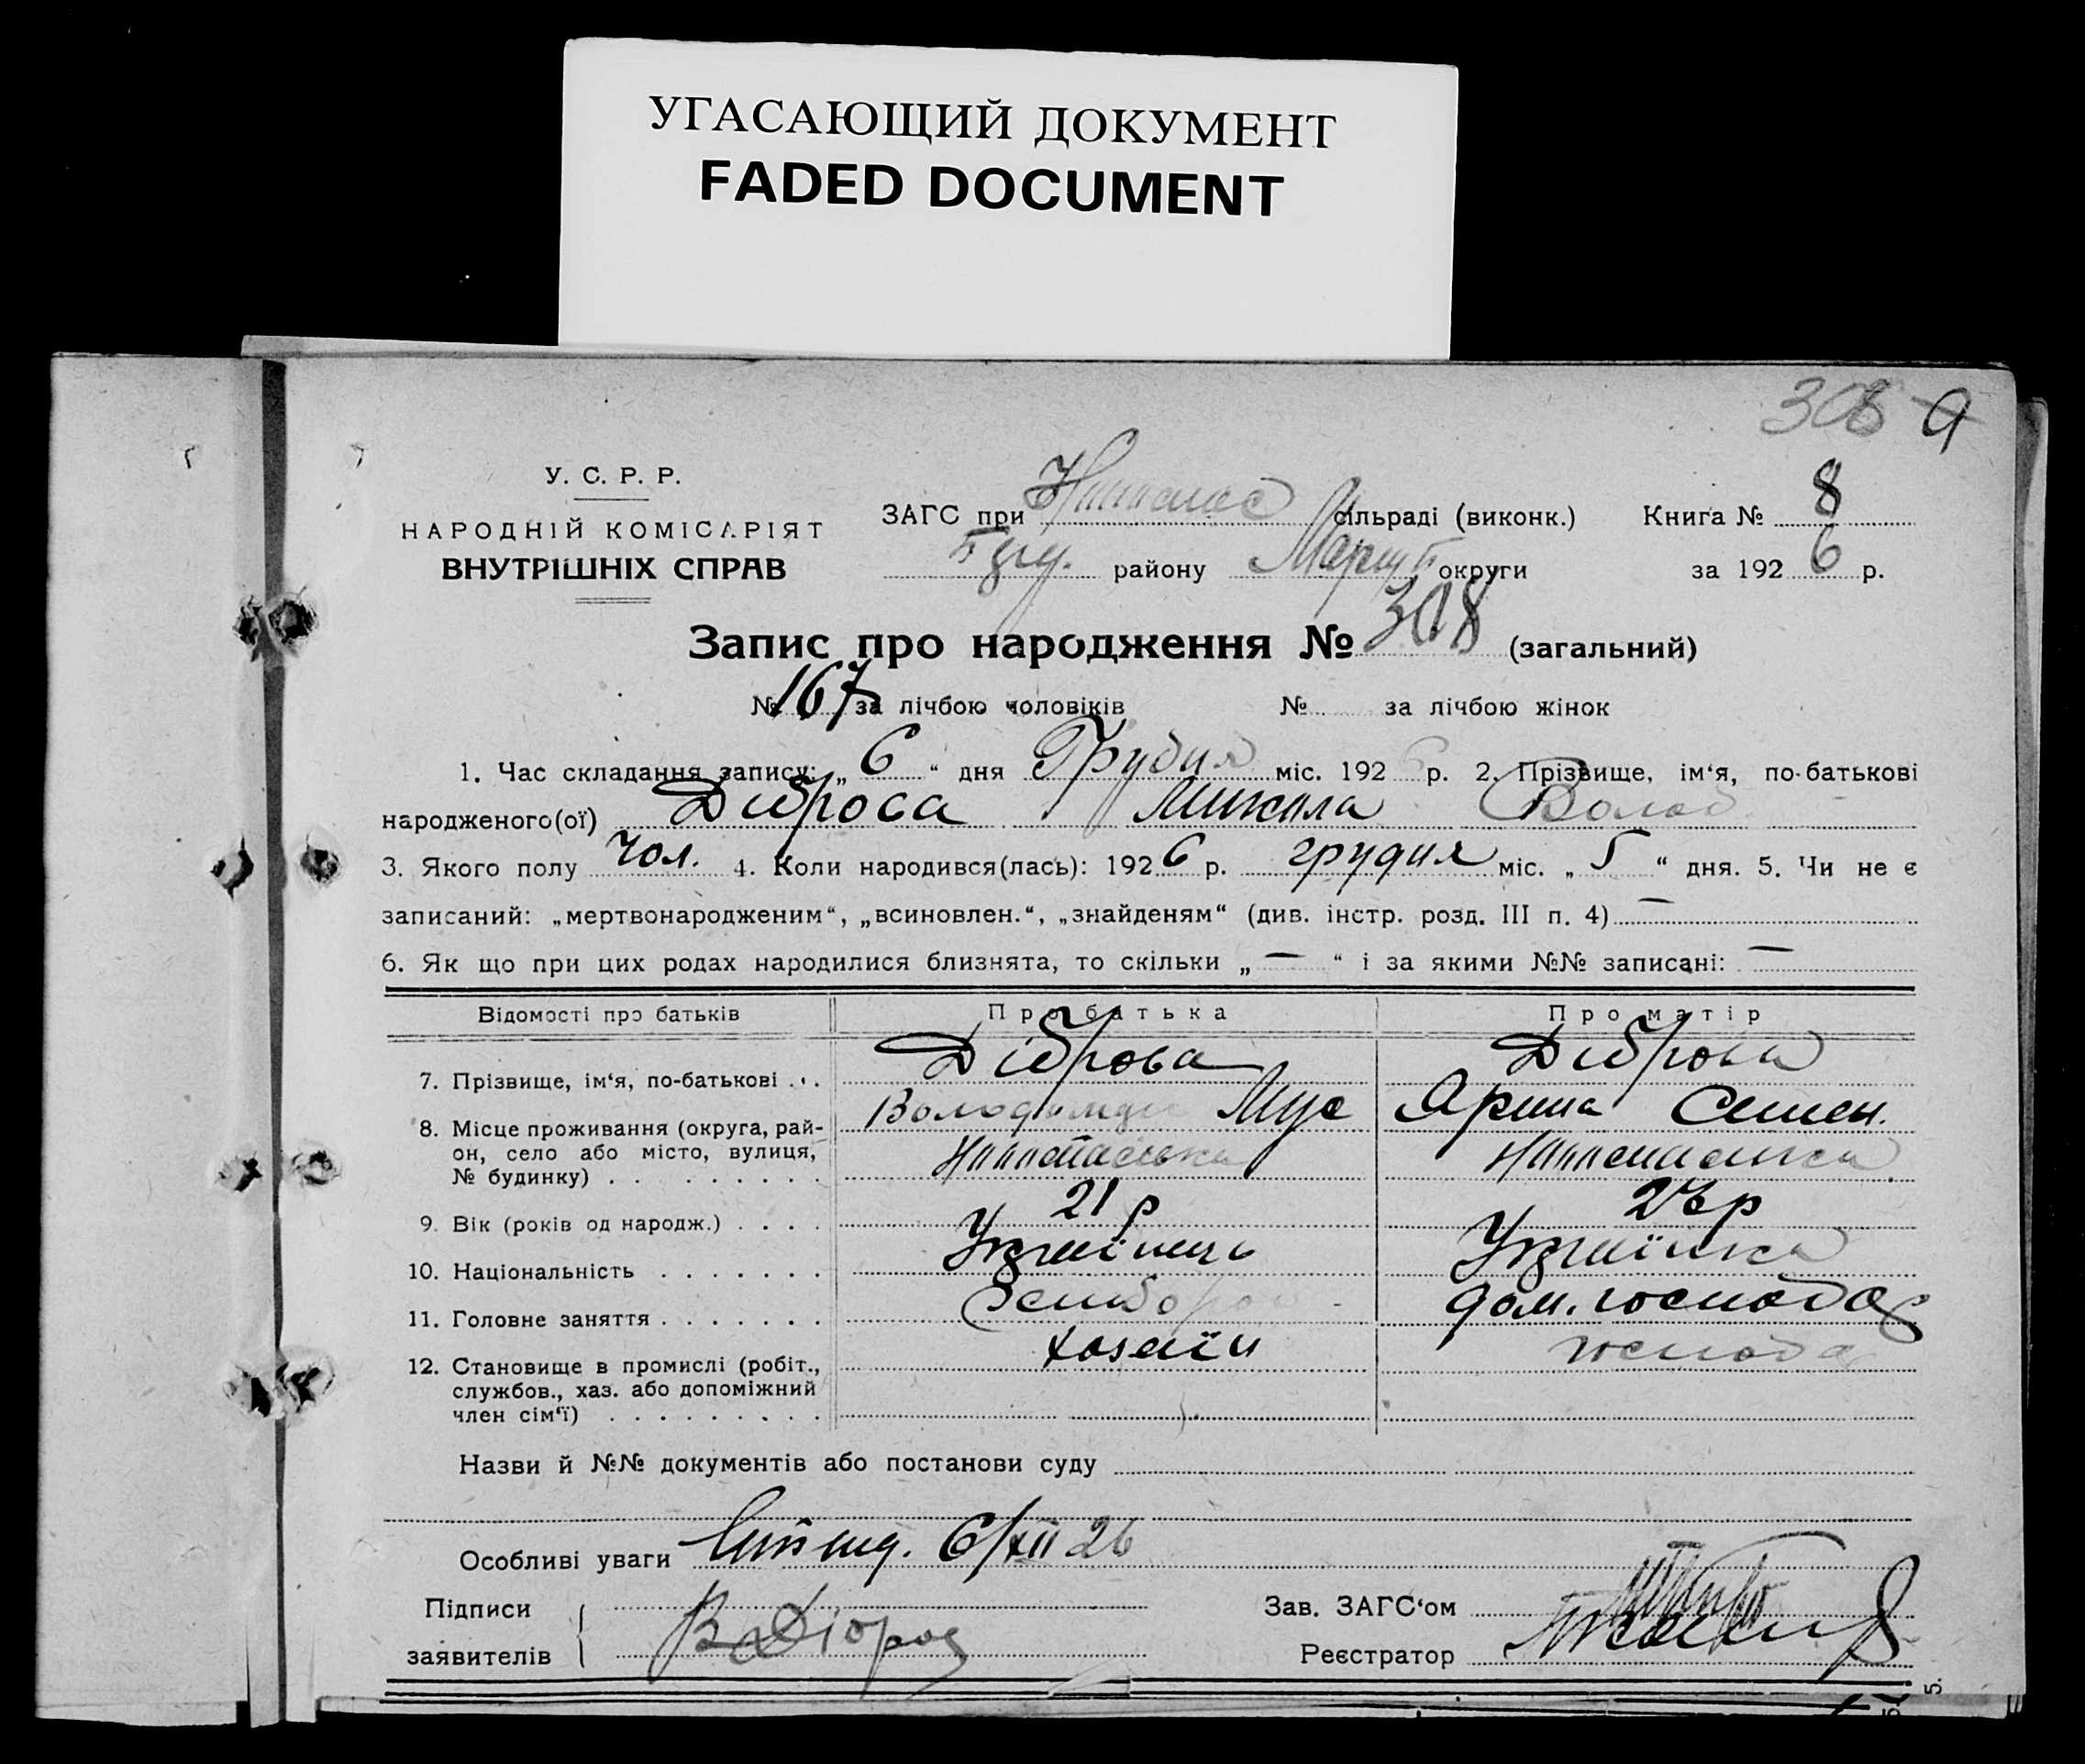 УГАСАЮЩИЙ ДОКУМЕНТ
FADED DOCUMENT
308 9
У. С. Р. Р.
НАРОДНІЙ КОМІСАРІЯТ
ВНУТРІШНІХ СПРАВ
ЗАГС при сільраді (виконк.) Книга № 8
району округи за 192 6 р.
Запис про народження № 308 (загальний)
№ 167 за лічбою чоловіків № за лічбою жінок
1. Час складання запису: „ 6 “ дня Грудня міс. 192 6 р. 2. Прізвище, ім‘я, по-батькові
народженого(ої) Діброва Микола Волод
3. Якого полу Чол. 4. Коли народився(лась): 192 6 р. грудня міс. „ 5 “ дня. 5. Чи не є
записаний: „мертвонародженим“, „всиновлен.“, „знайденям“ (див. інстр. розд. III п. 4) —
6. Як що при цих родах народилися близнята, то скільки „ — “ і за якими №№ записані: —
Відомості про батьків Про батька Про матір
7. Прізвище, ім‘я, по-батькові . . . Діброва Діброва
Володимир Мус Ярина Семен.
8. Місце проживання (округа, рай-
он, село або місто, вулиця,
№ будинку) . . . . . . . . .
9. Вік (років од народж.) . . . . 21 р р
10. Національність . . . . . . . Українець Українка
11. Головне заняття . . . . . . . Хлібороб дом. господар
12. Становище в промислі (робіт., хазяїн господар
службов., хаз. або допоміжний
член сім‘ї) . . . . . . . . .
Назви й №№ документів або постанови суду
Особливі уваги 6/XII 26
Підписи
заявителів В Діброва
Зав. ЗАГС‘ом
Реєстратор
5.